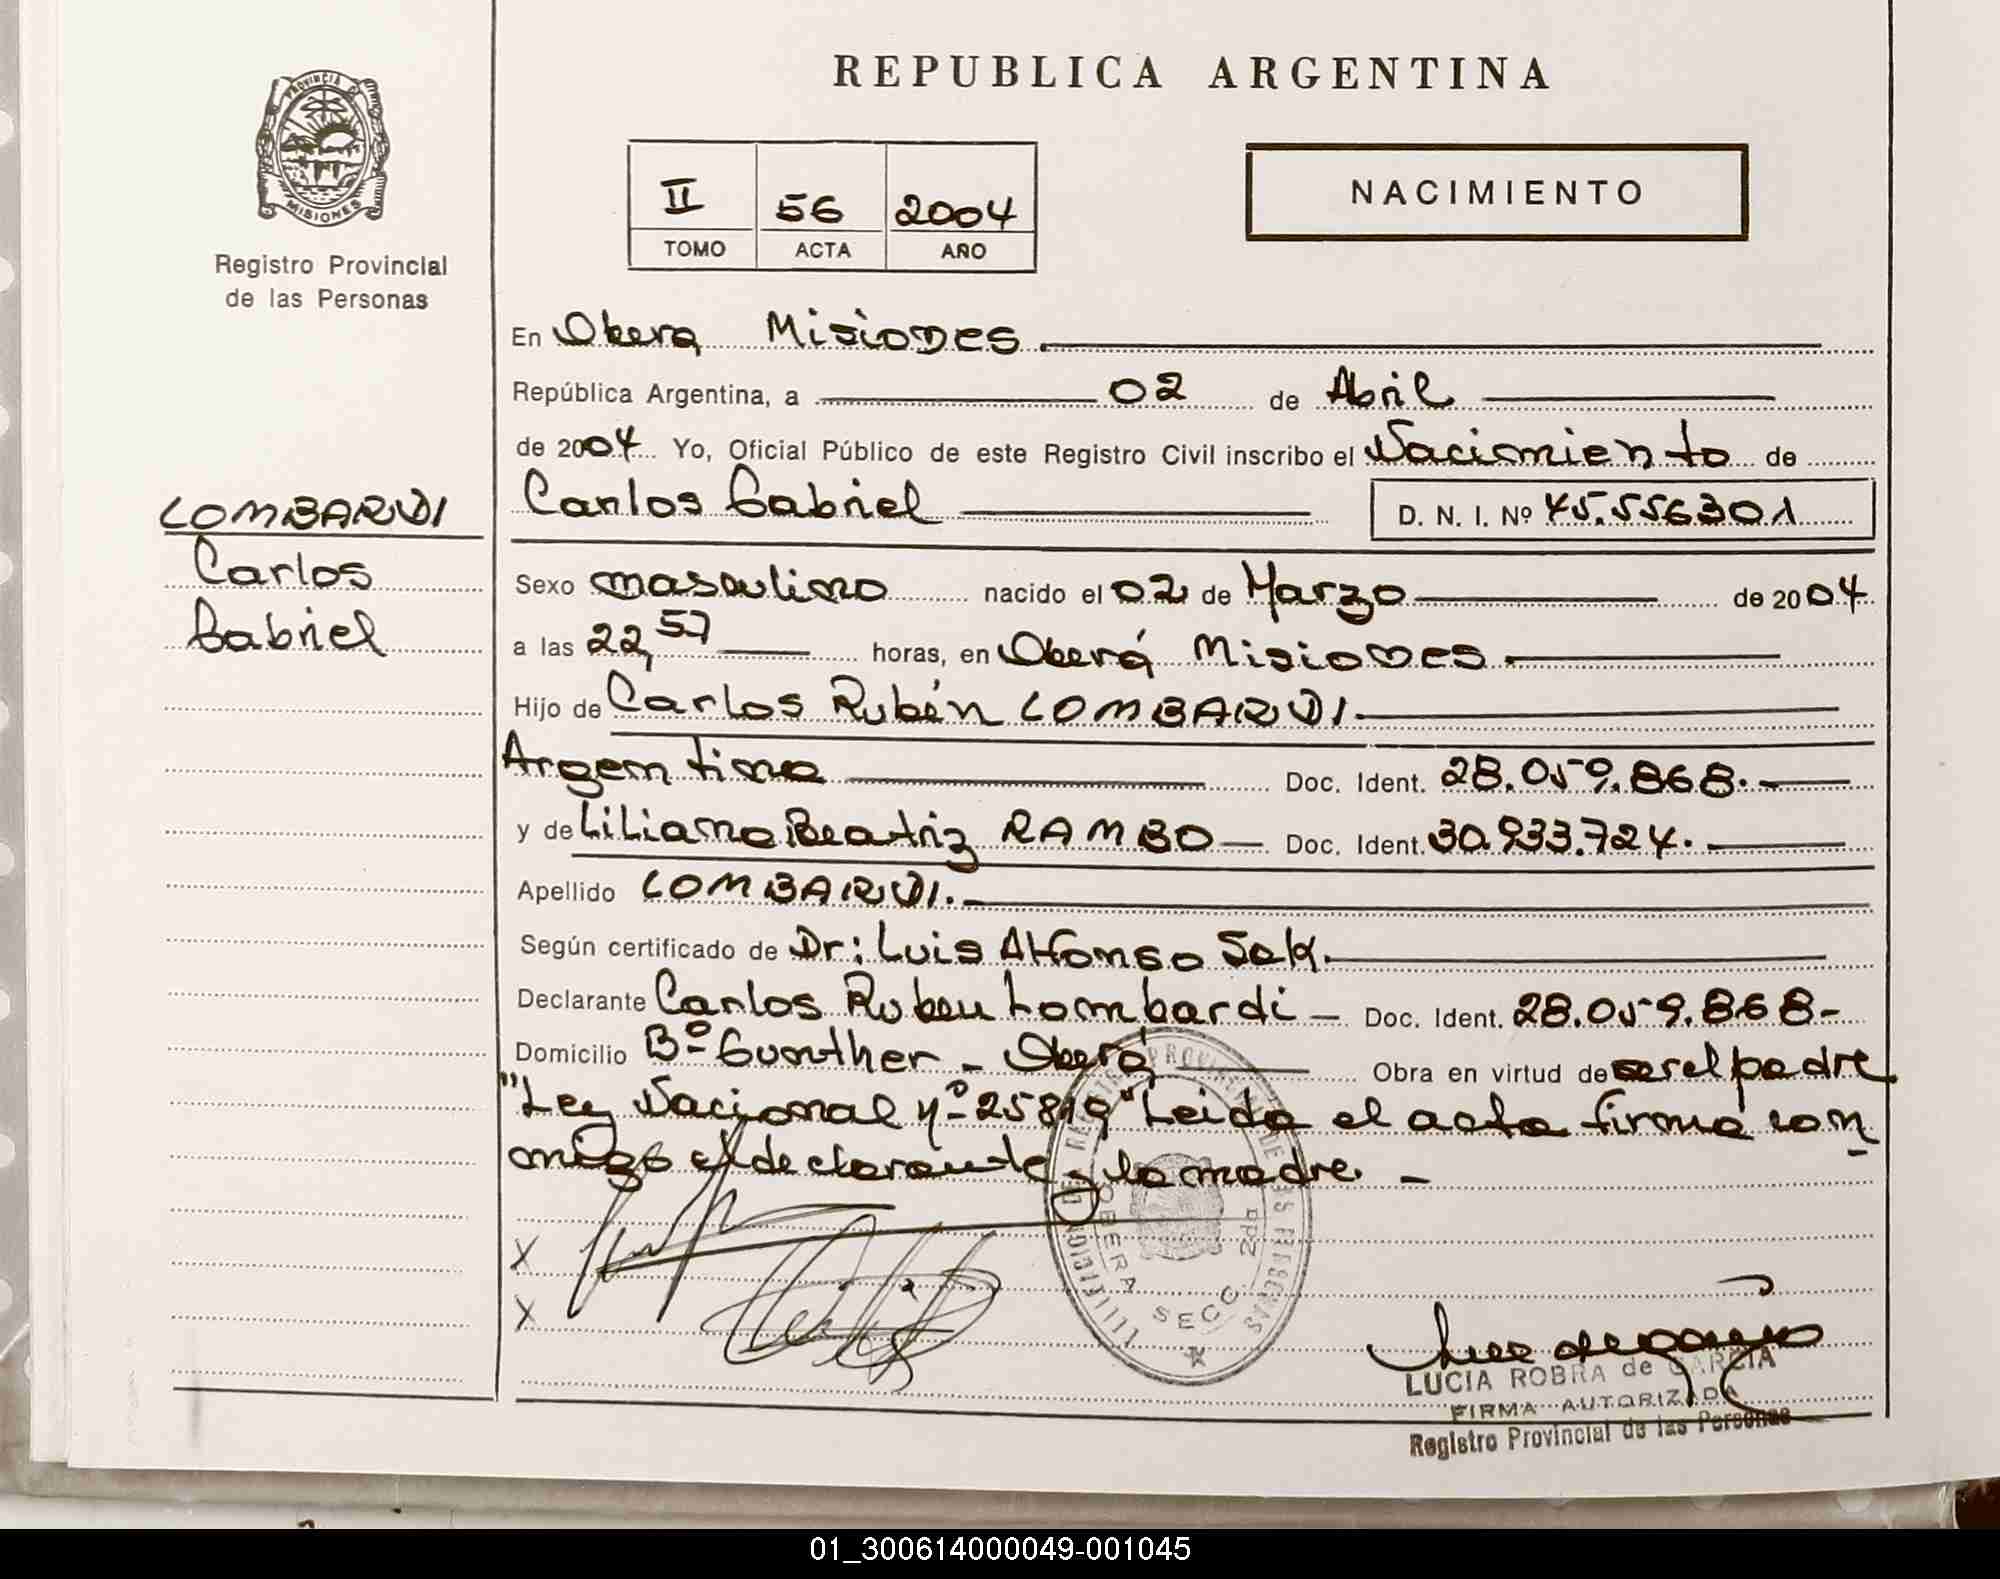 REPUBLICA ARGENTINA
PROVINCIA D MISIONES
Registro Provincial
de las Personas
II 56 2004
TOMO ACTA AÑO
NACIMIENTO
En Obera Misiones
República Argentina, a 02 de Abril
de 2004 Yo, Oficial Público de este Registro Civil inscribo el Nacimiento de
Carlos Gabriel D. N. I. Nº 45.556301
LOMBARDI
Carlos
Gabriel
Sexo masculino nacido el 02 de Marzo de 2004
a las 22,57 horas, en Oberá Misiones
Hijo de Carlos Rubén LOMBARDI
Argentina Doc. Ident. 28.059.868.-
y de Liliana Beatriz RAMBO - Doc. Ident. 30.933.724.
Apellido LOMBARDI.
Según certificado de Dr: Luis Alfonso
Declarante Carlos Ruben Lombardi - Doc. Ident. 28.059.868-
Domicilio Bº Gunther - Oberá Obra en virtud de ser el padre
"Ley Nacional Nº 25819" Leida el acta firma con
migo el declarante y la madre. -
X
X
OBERA SECC. 2da
LUCIA ROBRA de GARCIA
FIRMA AUTORIZADA
Registro Provincial de las Personas
01_300614000049-001045